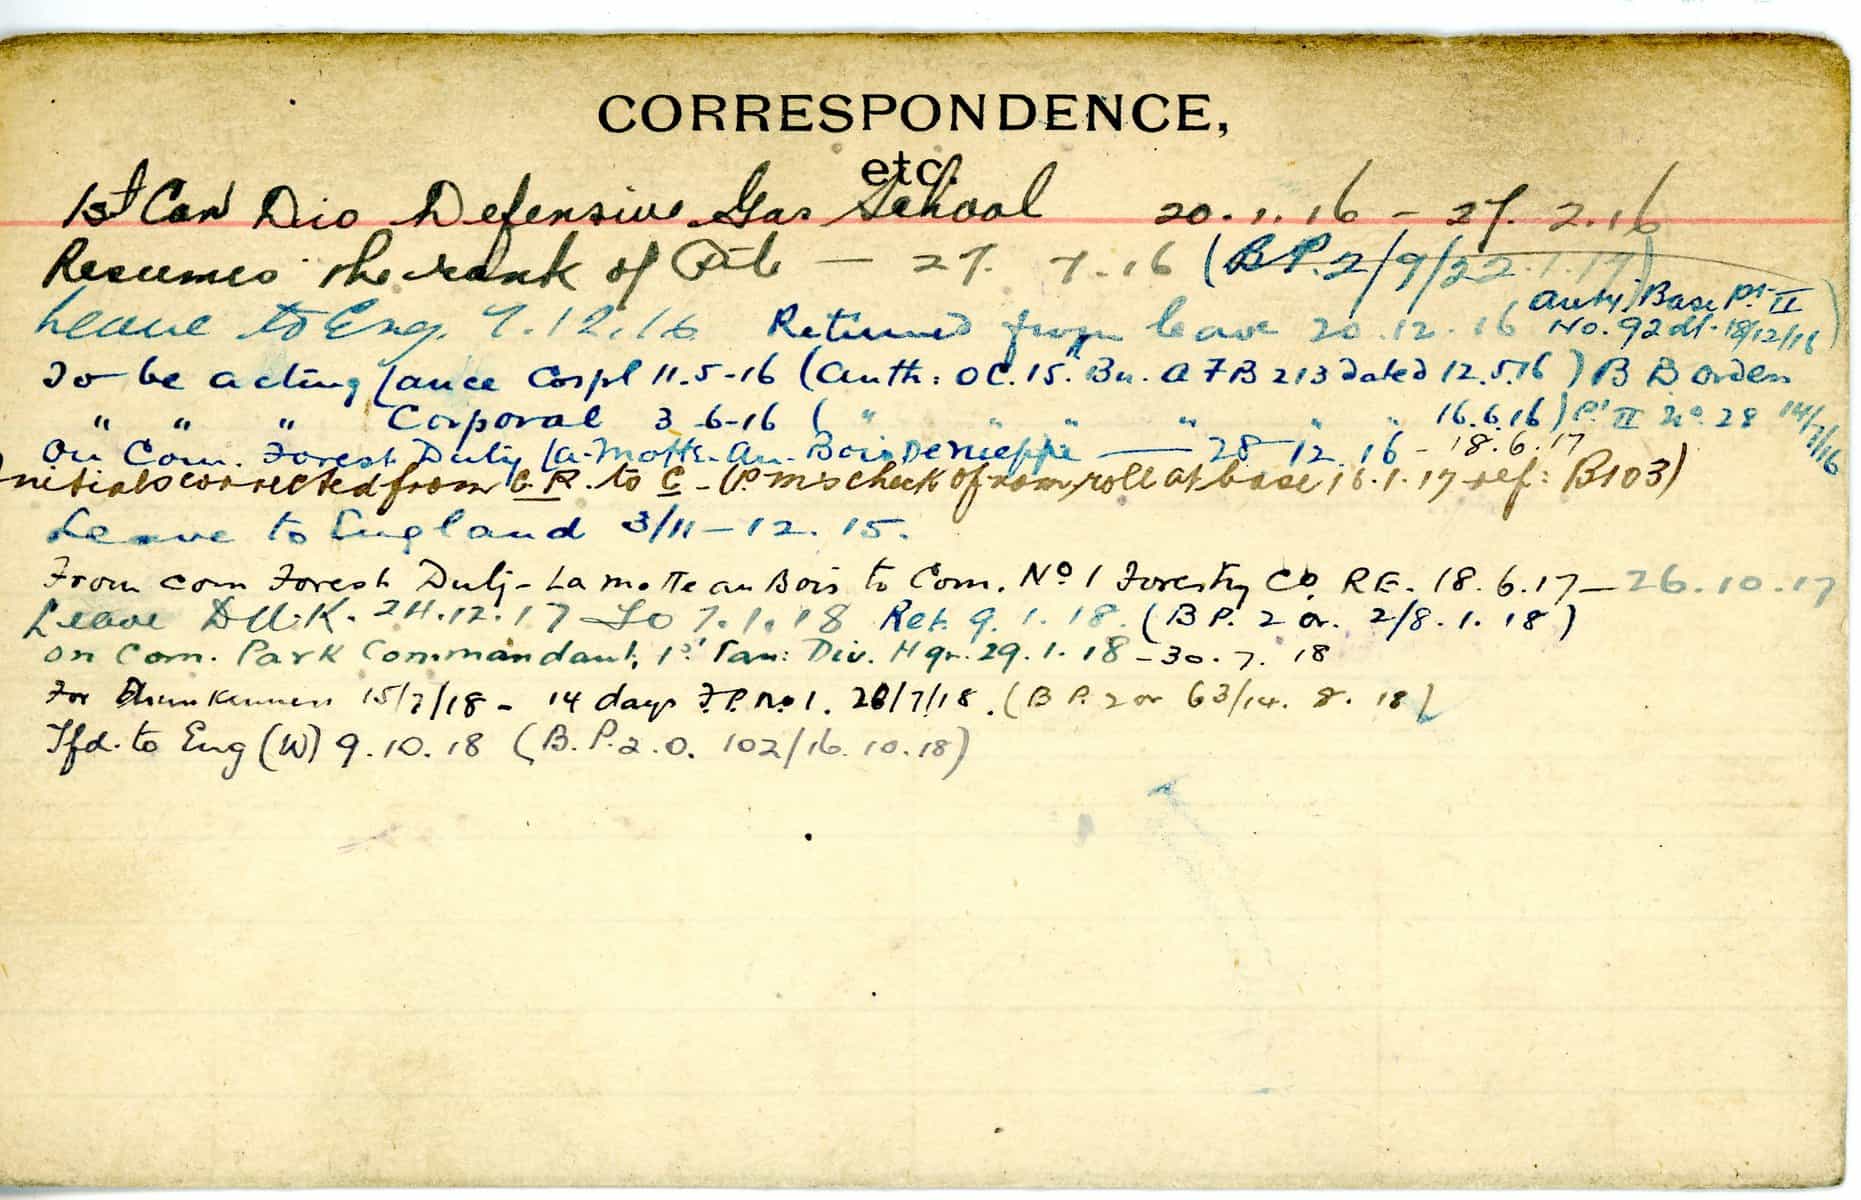 CORRESPONDENCE,
etc.
1st Can Div Defensive Gas School 20.1.16 - 27.2.16
Resumes the rank of Pte — 27. 7.16 (B.P.2/9/22.1.17)
Leave to Eng. 7.12.16 Returned from leave 20.12.16 (auty) Base Pt II
No. 92 dt. 18/12/16)
To be acting Lance Corpl 11.5-16 (Auth: OC. 15. Bn. A F B 213 dated 12.5.16) B B Orders
" " " Corporal 3-6-16 ( " " " " " " 16.6.16) Pt II No. 28 14/7/16
On Com. Forest Duty La-Motte-Au-Bois De Nieppe — 28-12.16 - 18.6.17
Initials corrected from C.R. to C - (P.M's check of nom, roll at base 16.1.17 ref: B103)
Leave to England 3/11-12.15.
From com Forest Duty - La Motte au Bois to Com. No 1 Forestry Co. RE. 18.6.17 — 26.10.17
Leave D U.K. 24.12.17 To 7.1.18 Ret. 9.1.18. (B P. 2 or. 2/8.1.18)
On Com. Park Commandant, 1st Can: Div. Hqr. 29.1.18 - 30.7.18
For Drunkenness 15/7/18 - 14 days F.P. No 1. 26/7/18. (B P. 2 or 63/14. 8. 18)
Tfd. to Eng (W) 9.10.18 (B.P.2.O. 102/16.10.18)